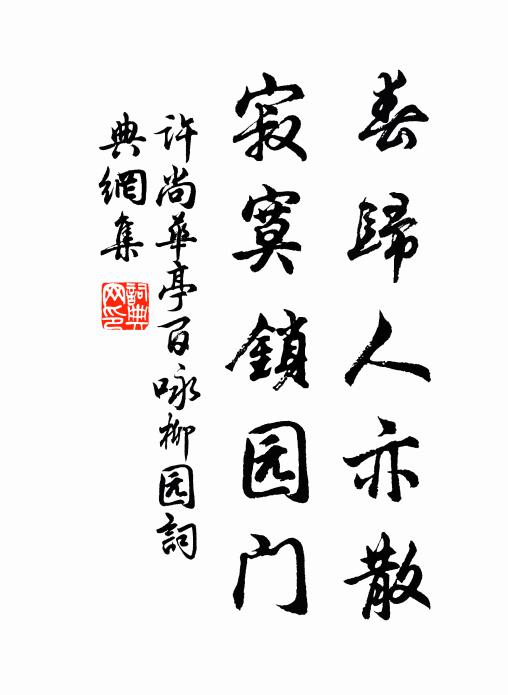 春歸人亦散
寂寞鎖园门
许尚華亭百咏柳园詞
典網集
詞典网印